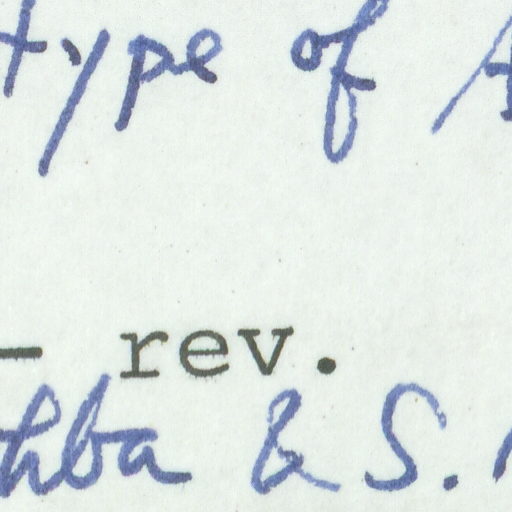 type of A
- rev.
hba & S.